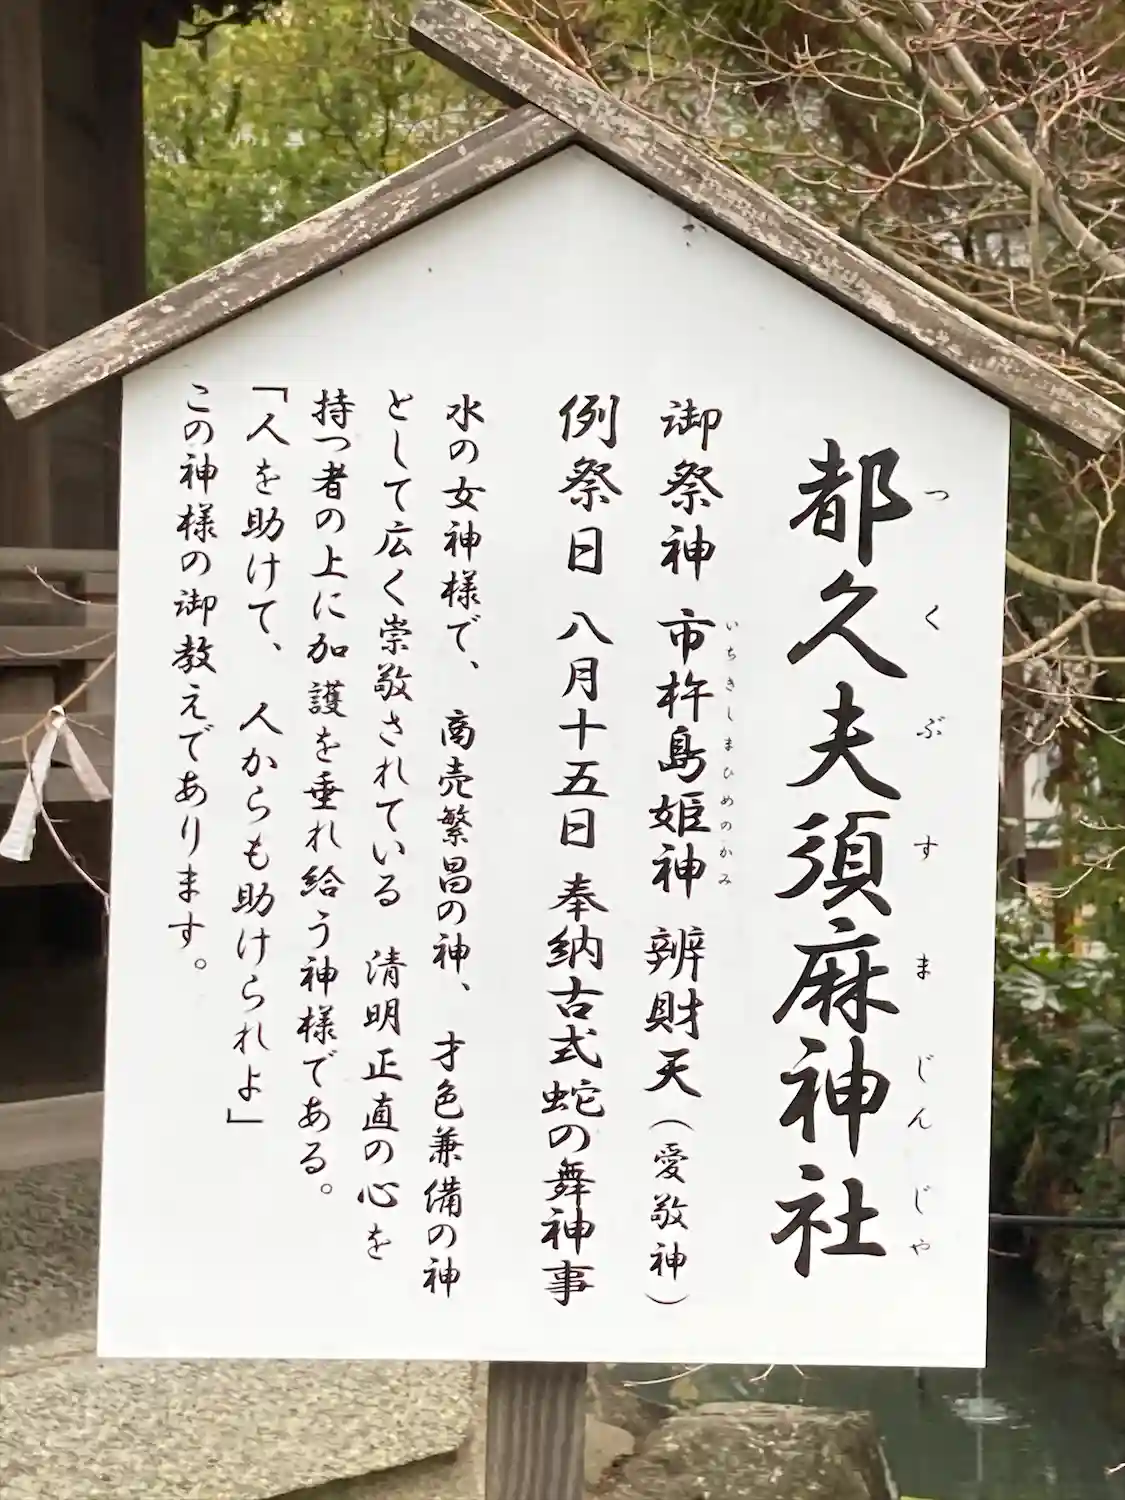 都久夫須麻神社
つくぶすまじんじゃ
御祭神 市杵島姫神 辨財天（愛敬神）
いちきしまひめのかみ
例祭日 八月十五日 奉納古式蛇の舞神事
水の女神様で、商売繁昌の神、才色兼備の神
として広く崇敬されている 清明正直の心を
持つ者の上に加護を垂れ給う神様である。
「人を助けて、人からも助けられよ」
この神様の御教えであります。